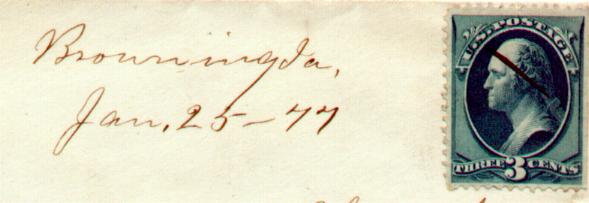 Browningda,
Jan, 25-77
U.S. POSTAGE
THREE 3 CENTS